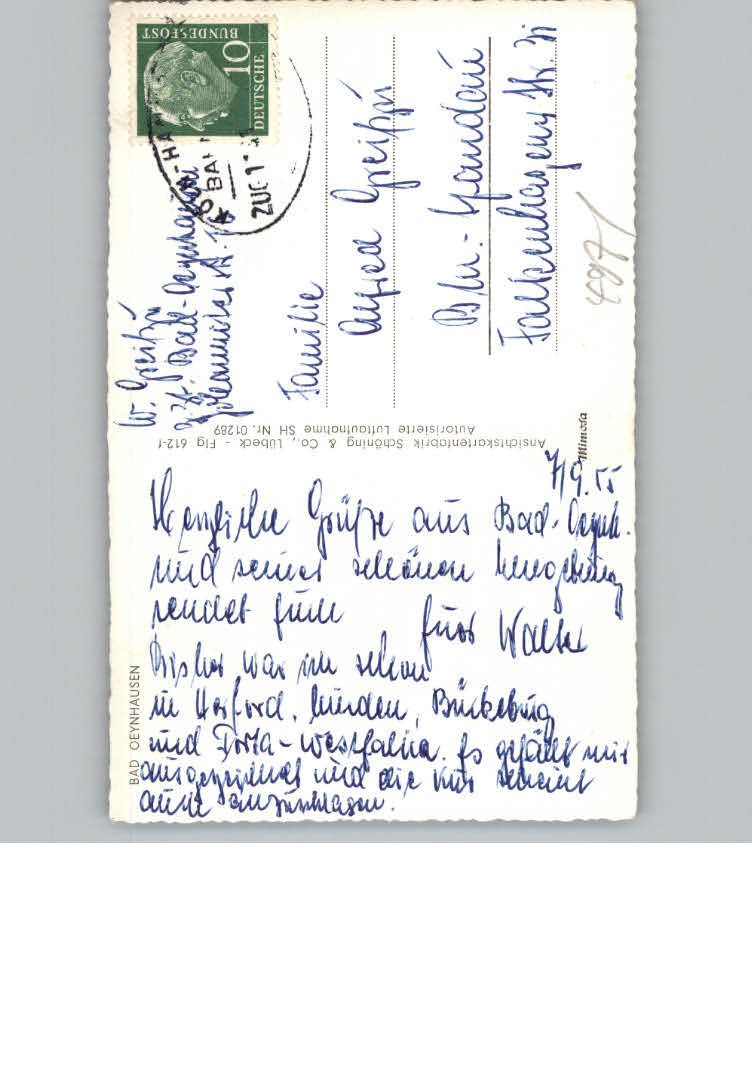 BAD OEYNHAUSEN
7/9.55
Herzliche Grüße aus Bad-Oeynh.
und seiner schönen Umgebung
sendet Euch
Euer Walter
Bisher war ich schon
in Herford, Minden, Bückeburg
und Porta-Westfalica. Es gefällt mir
ausgezeichnet und die Kur scheint
auch anzuschlagen.
Ansichtskartenfabrik Schöning & Co., Lübeck - Flg 612-f
Autorisierte Luftaufnahme SH Nr. 01289
Mimosa
W.
z.Zt. Bad-Oeynhausen
DEUTSCHE
BUNDESPOST
10
ZUG
Familie
Alfred
Bln.-Spandau
Falkenhagener Str.
4971